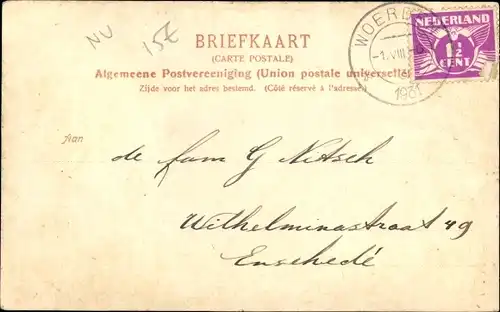 NU 15€
BRIEFKAART
(CARTE POSTALE)
Algemeene Postvereeniging (Union postale universelle)
Zijde voor het adres bestemd. (Côté réservé à l'adresse)
NEDERLAND
1½
CENT
1.VIII
1931
Aan
de fam G Nitsch
Wilhelminastraat 49
Enschedé